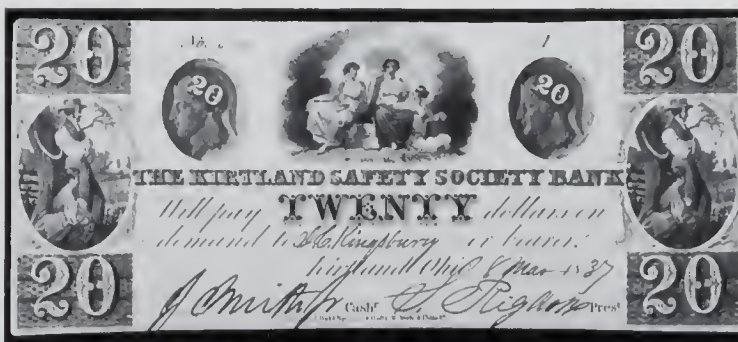 20 No. 1 20
20 20
THE KIRTLAND SAFETY SOCIETY BANK
Will pay TWENTY dollars on
demand to H.C. Kingsbury or bearer.
Kirtland Ohio 8 Mar 1837
20 J Smith Jr Cashr. S Rigdon Prest. 20